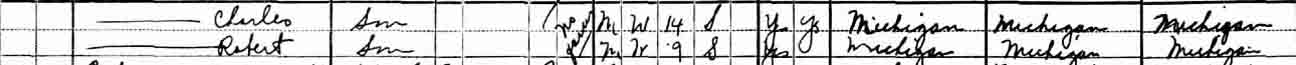 Charles Son M W 14 S Yes Yes Michigan Michigan Michigan
Robert Son M W 9 S Yes Michigan Michigan Michigan